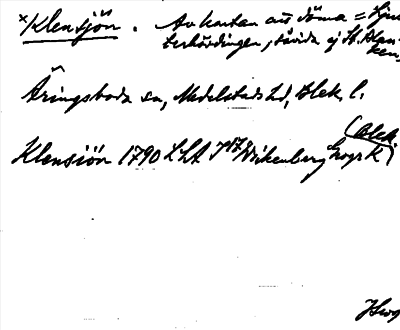 ×Klensjön. Av kartan att döma = Ljus-
terhövdingen, såvida ej St. Klen-
ken.
Åringsboda sn, Medelstads hd, Blek. l.
(Blek.
Klensiön 1790 LHA J 17 Wikenberg Geogr K)
Hwg